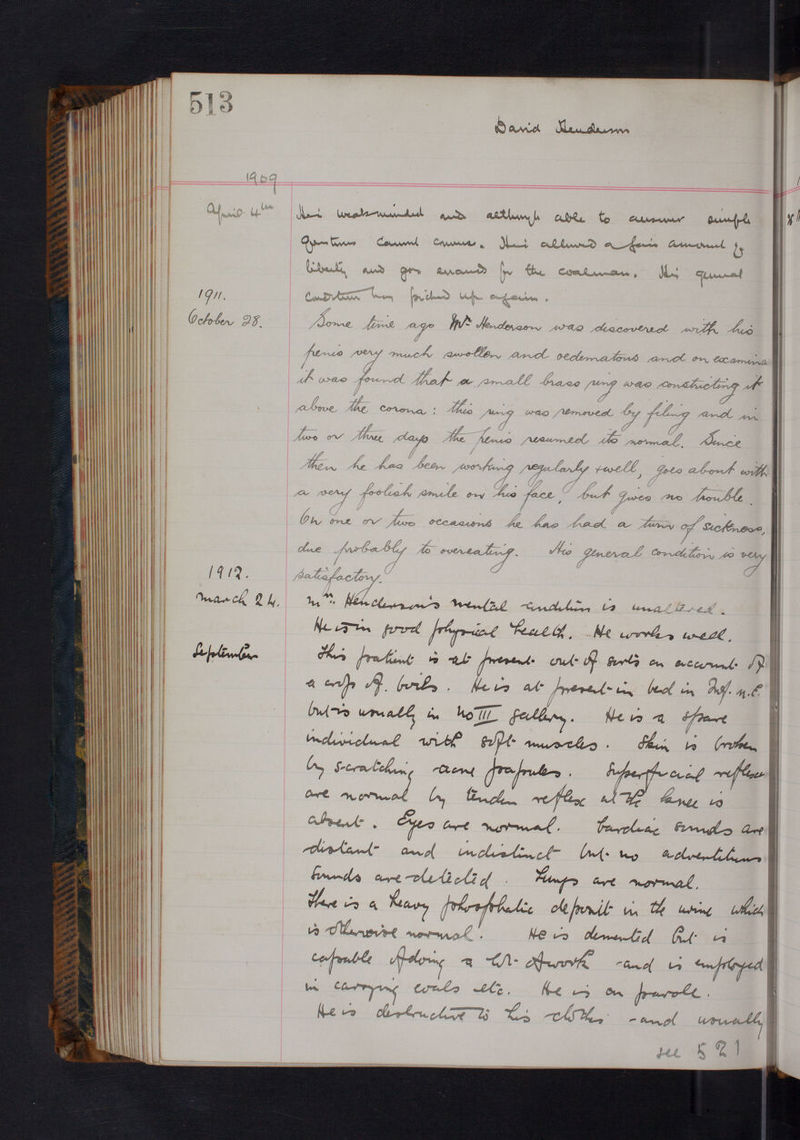 513
David Henderson
1909
April 4th He is weakminded and although able to answer simple
questions cannot converse. He is allowed a fair amount of
liberty and goes errands for the coalman. His general
1911. condition has picked up again.
October 28. Some time ago Mr Henderson was discovered with his
penis very much swollen and oedematous and on examina
it was found that a small brass ring was constricting it
above the corona: this ring was removed by filing and in
two or three days the penis resumed its normal. Since
then he has been working regularly & well, goes about with
a very foolish smile on his face, but gives no trouble.
On one or two occasions he has had a turn of sickness,
due probably to overeating. His general condition is very
1912. satisfactory.
March 24. Mr. Henderson's mental condition is unaltered.
He is in good physical health. He works well.
September This patient is at present out of sorts on account of
a crop of boils. He is at present in bed in Inf. n.E.
but is usually in No III gallery. He is a spare
individual with soft muscles. Skin is broken
by scratching acne papules. Superficial reflexes
are normal by tendon reflex at the knee is
absent. Eyes are normal. Cardiac sounds are
distant and indistinct but no adventitious
sounds are detected. Lungs are normal.
There is a heavy phosphatic deposit in the urine which
is otherwise normal. He is demented but is
capable of doing a lot of work and is employed
in carrying coals etc. He is on parole.
He is destructive to his clothes and usually
see 521